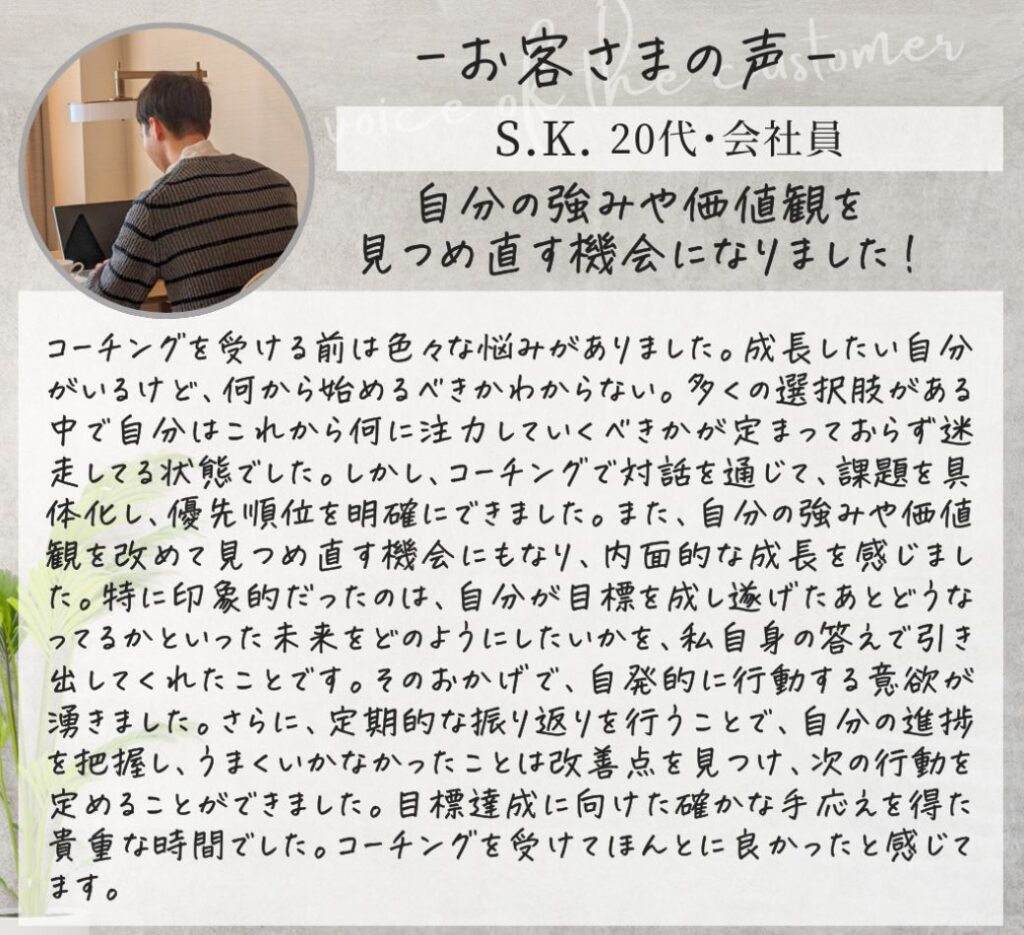 -お客さまの声-
voice of the customer
S.K. 20代・会社員
自分の強みや価値観を
見つめ直す機会になりました！
コーチングを受ける前は色々な悩みがありました。成長したい自分
がいるけど、何から始めるべきかわからない。多くの選択肢がある
中で自分はこれから何に注力していくべきかが定まっておらず迷
走してる状態でした。しかし、コーチングで対話を通じて、課題を具
体化し、優先順位を明確にできました。また、自分の強みや価値
観を改めて見つめ直す機会にもなり、内面的な成長を感じまし
た。特に印象的だったのは、自分が目標を成し遂げたあとどうな
ってるかといった未来をどのようにしたいかを、私自身の答えで引き
出してくれたことです。そのおかげで、自発的に行動する意欲が
湧きました。さらに、定期的な振り返りを行うことで、自分の進捗
を把握し、うまくいかなかったことは改善点を見つけ、次の行動を
定めることができました。目標達成に向けた確かな手応えを得た
貴重な時間でした。コーチングを受けてほんとに良かったと感じて
ます。